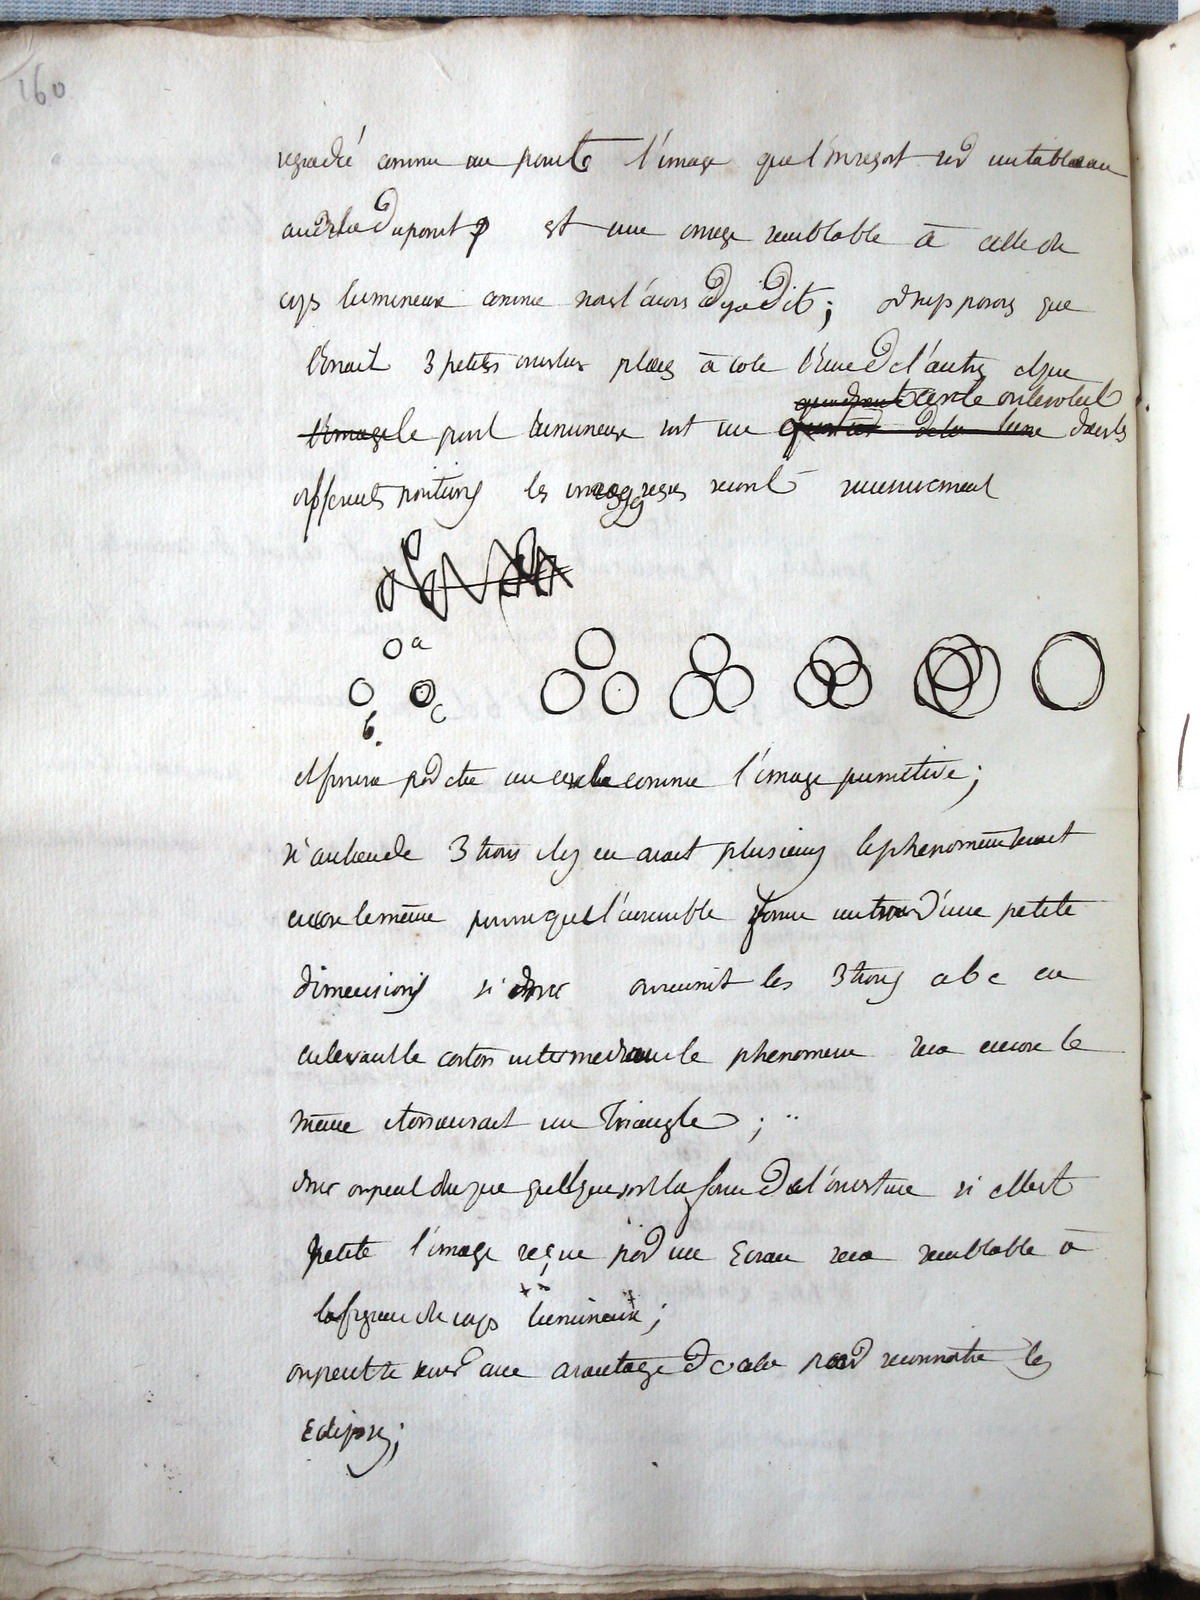 160
regardé comme un point l'image que l'on reçoit sur un tableau
au delà du point p est une image semblable à celle du
corps lumineux comme nous l'avons deja dit ; or supposons que
l'on ait 3 petits ouvertures placés à cote l'une de l'autre et que
quand cercle ou le soleil
l'image le point lumineux soit une quartier de la lune dans les
differents positions les images reçues seront successivement
a
b c
et finira par etre un cercle comme l'image primitive ;
si au lieu de 3 trous il y en avait plusieurs le phenomene serait
encore le même pourvu que l'ensemble forme un trou d'une petite
dimensions si donc on reunit les 3 trous a b c en
enlevant le carton intermediaire le phenomene sera encore le
même et on aurait un Triangle ;
donc on peut dire que quelque soit la forme de l'ouverture si elle est
petite l'image reçue par une Ecran sera semblable à
la figure du corps lumineux ;
on peut se servir avec avantage de cela pour reconnoitre les
Eclipses ;